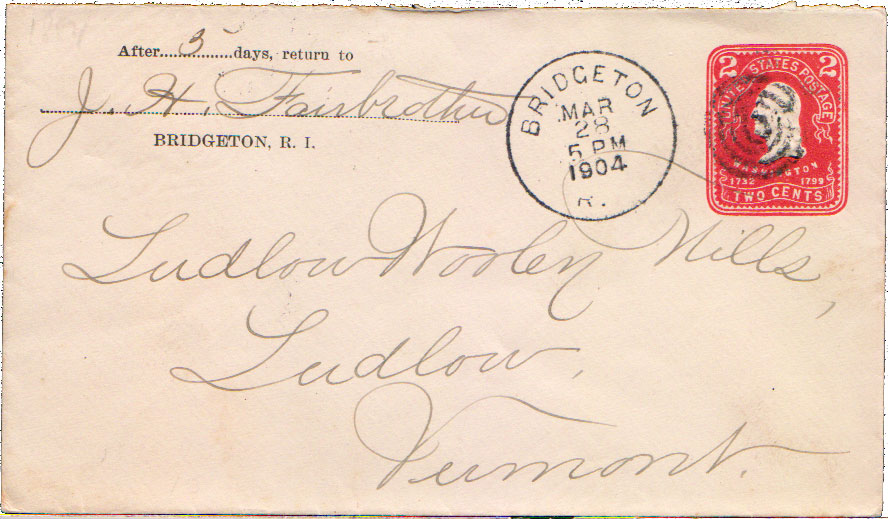 1904
After....5....days, return to
J. H. Fairbrother
BRIDGETON, R. I.
BRIDGETON
MAR
28
5 PM
1904
R.
2 UNITED STATES POSTAGE 2
WASHINGTON
1732 1799
TWO CENTS
Ludlow Woolen Mills,
Ludlow,
Vermont.